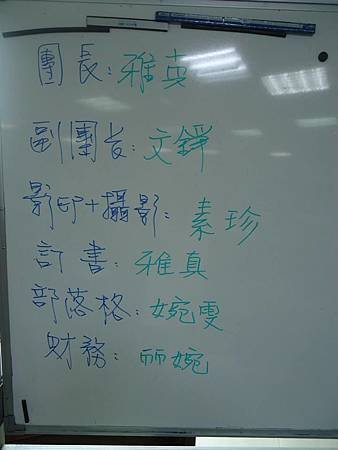 團長：雅真
副團長：文錚
影印+攝影：素珍
訂書：雅真
部落格：婉雯
財務：丽婉